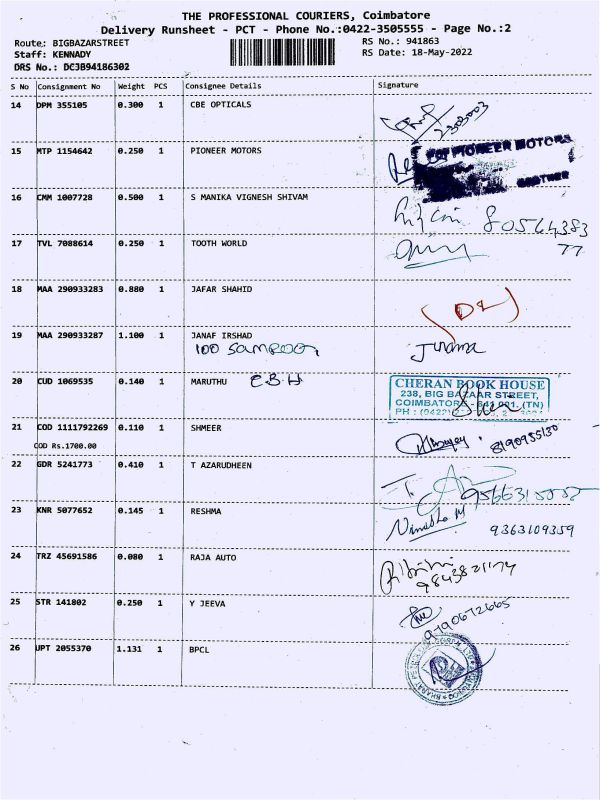 THE PROFESSIONAL COURIERS, Coimbatore
Delivery Runsheet - PCT - Phone No.:0422-3505555 - Page No.:2
Route: BIGBAZARSTREET RS No.: 941863
Staff: KENNADY RS Date: 18-May-2022
DRS No.: DCJB94186302
S No Consignment No Weight PCS Consignee Details Signature
14 DPM 355105 0.300 1 CBE OPTICALS
2303003
15 MTP 1154642 0.250 1 PIONEER MOTORS
For PIONEER MOTORS
16 CMM 1007728 0.500 1 S MANIKA VIGNESH SHIVAM
80564383
77
17 TVL 7088614 0.250 1 TOOTH WORLD
18 MAA 290933283 0.880 1 JAFAR SHAHID
19 MAA 290933287 1.100 1 JANAF IRSHAD
100
20 CUD 1069535 0.140 1 MARUTHU C.B.H
CHERAN BOOK HOUSE
238, BIG BAZAAR STREET,
COIMBATORE - 641 001. (TN)
PH : (0422)
21 COD 1111792269 0.110 1 SHMEER
COD Rs.1700.00
8190955130
22 GDR 5241773 0.410 1 T AZARUDHEEN
23 KNR 5077652 0.145 1 RESHMA
Nimisha M 9363109359
24 TRZ 45691586 0.080 1 RAJA AUTO
9843821174
25 STR 141802 0.250 1 Y JEEVA
9190672665
26 UPT 2055370 1.131 1 BPCL